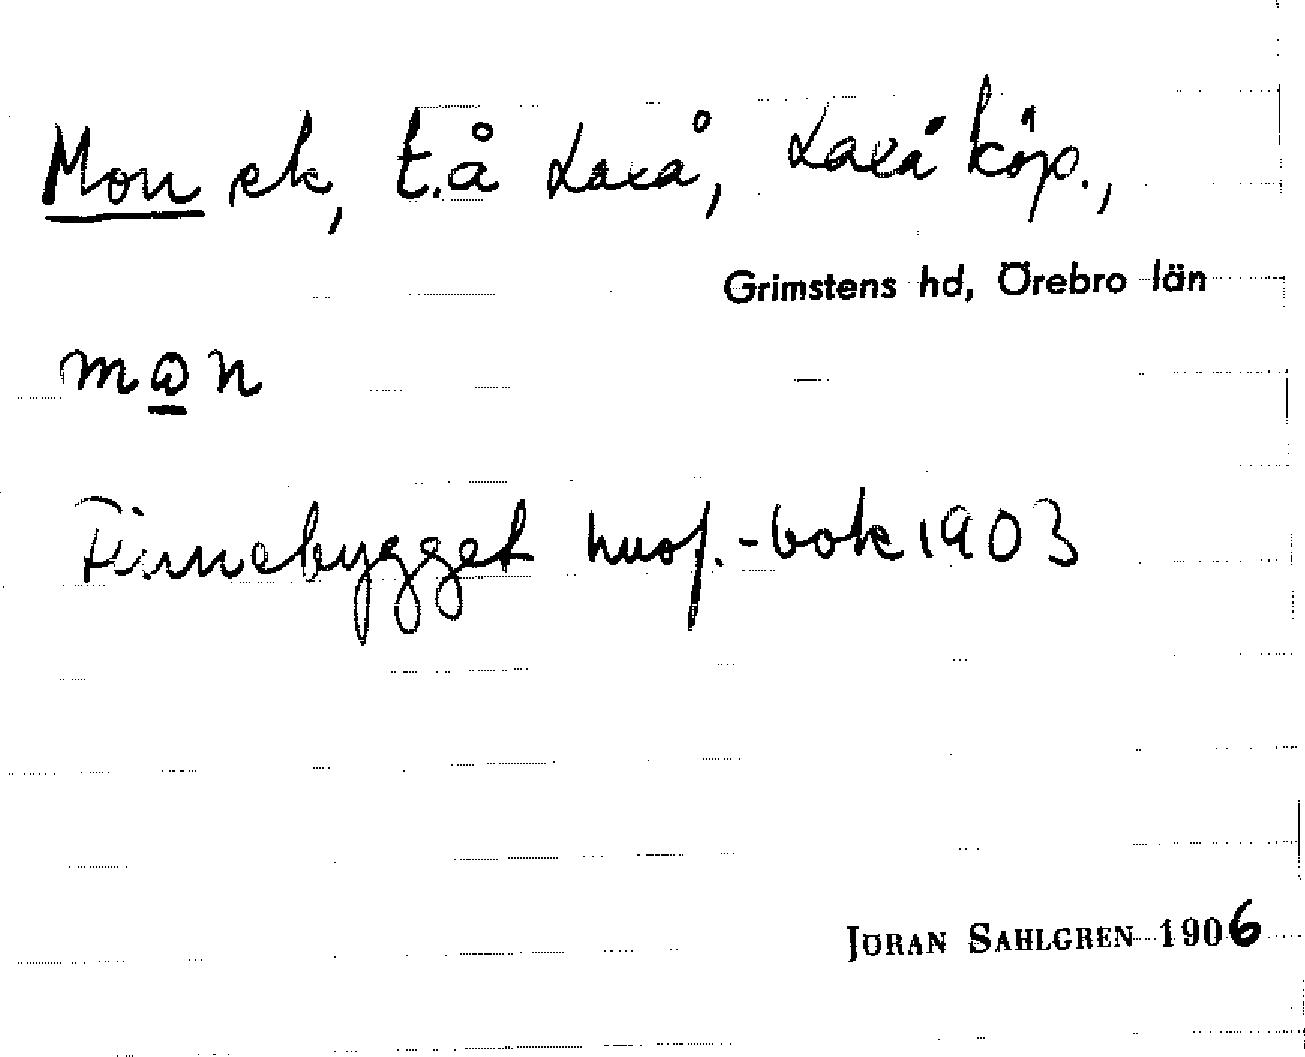 Mon ek, t.å Laxå, Laxå köp.,
Grimstens hd, Örebro län
Finnebygget husf.-bok 1903
JÖRAN SAHLGREN 1906